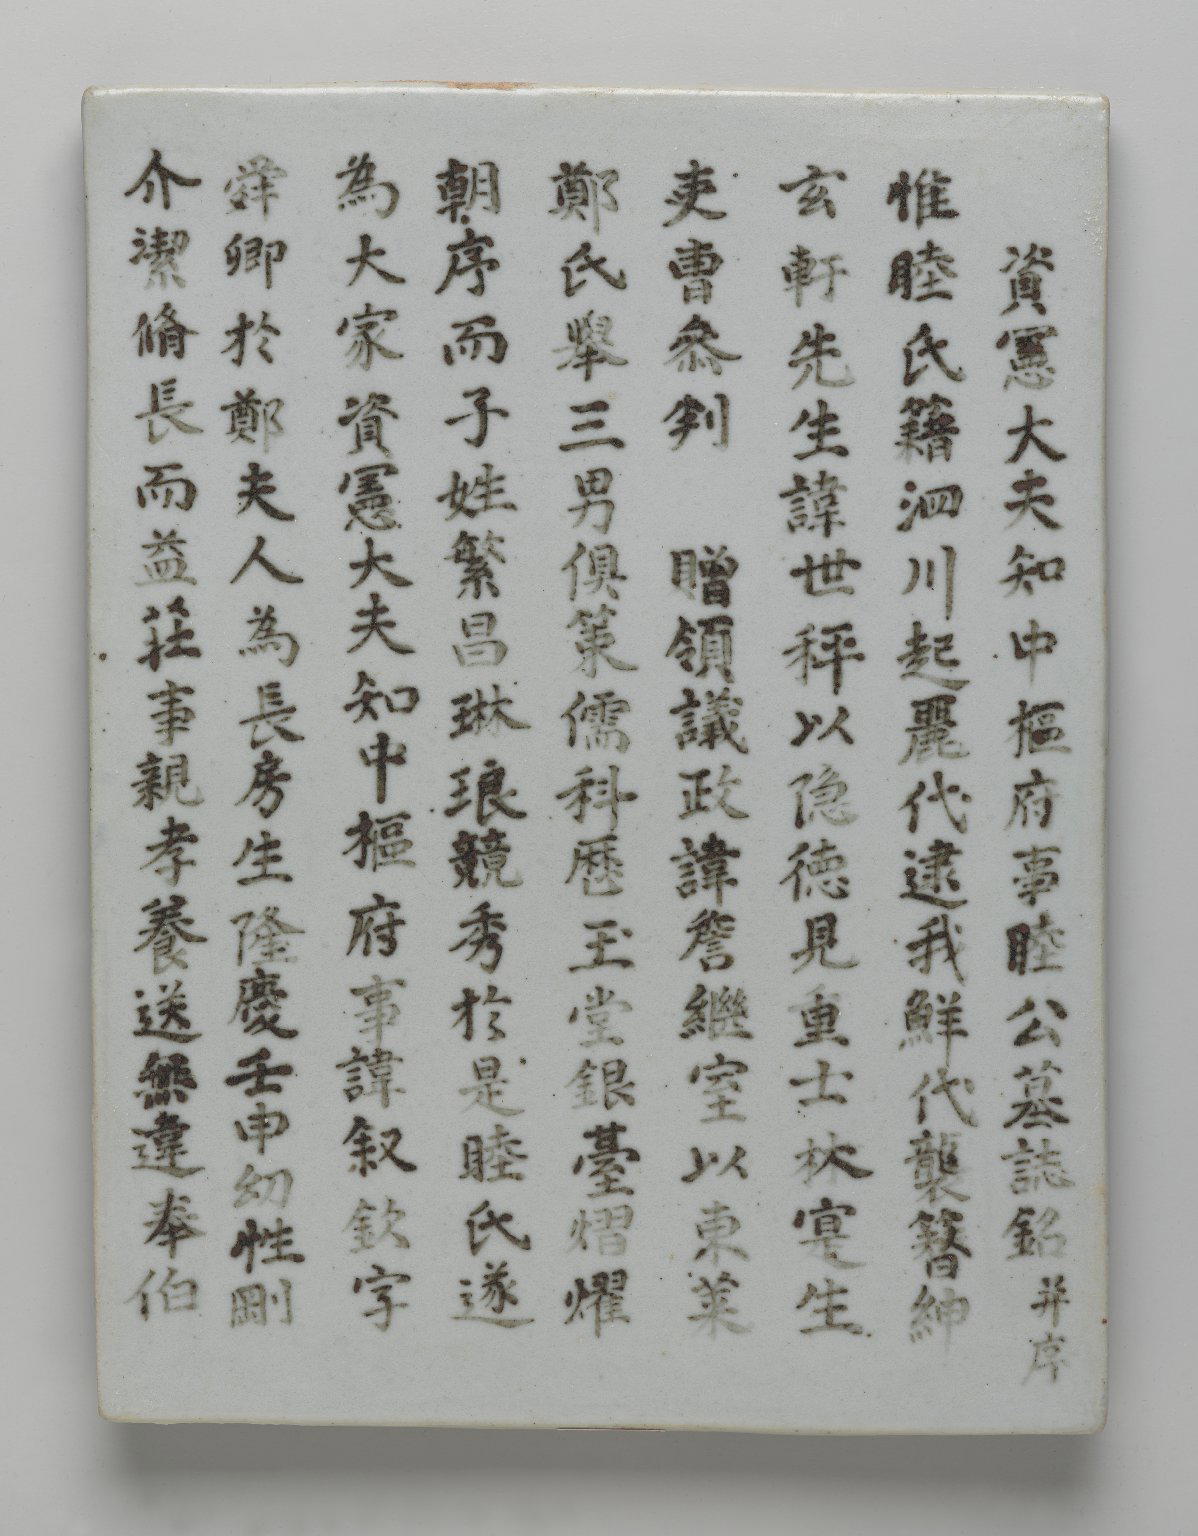 資憲大夫知中樞府事睦公墓誌銘并序
惟睦氏籍泗川起麗代逮我鮮代襲簪紳
玄軒先生諱世秤以隐徳見重士林寔生
吏曹叅判 贈領議政諱詹継室以東萊
鄭氏舉三男俱策儒科歴玉堂銀臺熠燿
朝序而子姓繁昌琳琅競秀於是睦氏遂
為大家資憲大夫知中樞府事諱叙欽字
舜卿於鄭夫人為長房生隆慶壬申幼性剛
介潔脩長而益莊事親孝養送無違奉伯